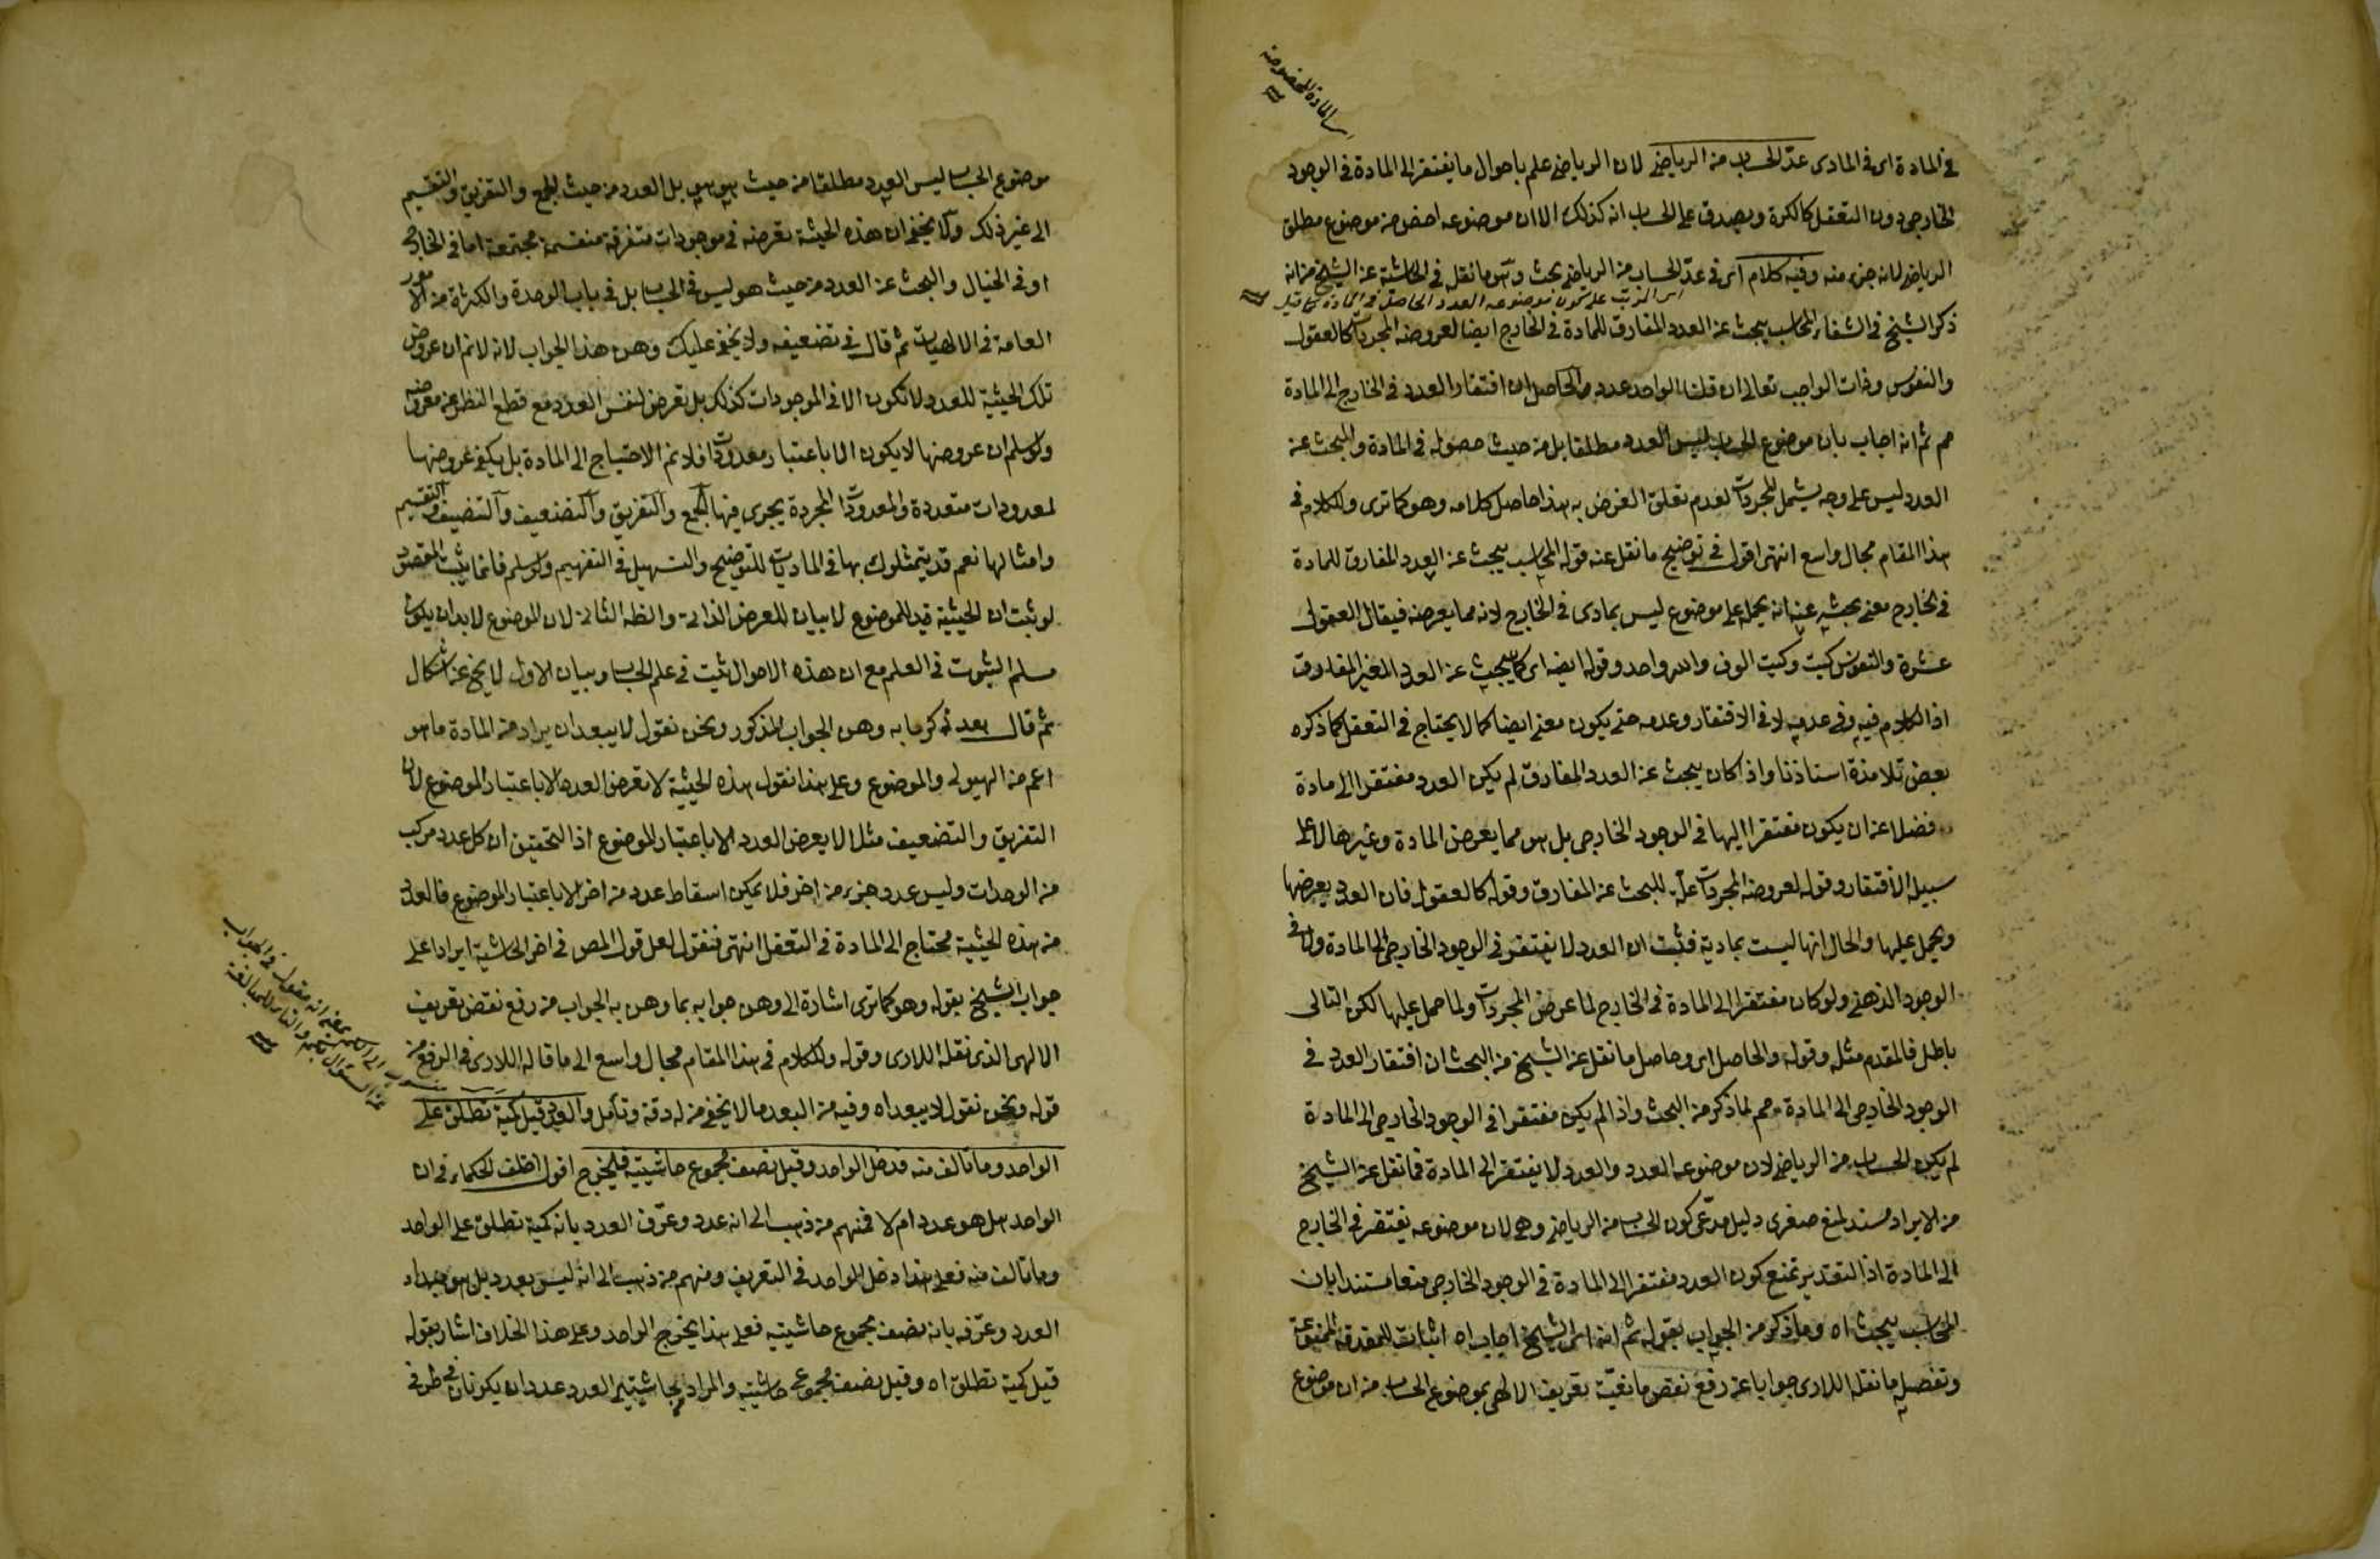 في المادة اى في المادى عدّ الحساب من الرياضي لان الرياضي علم باحوال ما يفتقر الى المادة في الوجود
الخارجى دون التعقل كالكرة ويصدق على الحساب انه كذلك الا ان موضوعه اخص من موضوع مطلق
الرياضي لانه جزء منه وفيه كلام اى في عدّ الحساب من الرياضي بحث وهو ما نقله في الحاشية عن الشيخ من انه
ذكر الشيخ في الشفاء المحاسب يبحث عن العدد المفارق للمادة في الخارج ايضا لعروضه المجردات كالعقول
والنفوس وذات الواجب تعالى ان قلنا الواحد عدد والحاصل ان افتقار العدد في الخارج الى المادة
مم ثم انه اجاب بان موضوع الحساب ليس العدد مطلقا بل من حيث حصوله في المادة والبحث عن
العدد ليس على وجه يشمل المجردات لعدم تعلق الغرض به هذا حاصل كلامه وهو كما ترى وللكلام في
هذا المقام مجال واسع انتهى اقول في توضيح ما نقل عنه قوله المحاسب يبحث عن العدد المفارق للمادة
في الخارج معنى بحثه عنه انه يحمله على موضوع ليس بمادى في الخارج لانه مما يعرضه فيقال العقول
عشرة والنفوس كيت وكيت الوف والله واحد وقوله ايضا اى كما يبحث عن العدد الغير المفارق
اذ الكلام فيه وفي عدمه لا في الافتقار وعدمه حتى يكون معنى ايضا كما لا يحتاج في التعقل كما ذكره
بعض تلامذة استاذنا واذا كان يبحث عن العدد المفارق لم يكن العدد مفتقرا الى مادة
فضلا عن ان يكون مفتقرا اليها في الوجود الخارجى بل هو مما يعرض المادة وغيرها لا على
سبيل الافتقار وقوله لعروضه المجردات علة للبحث عن المفارق وقوله كالعقول فان العدد يعرضها
ويحمل عليها والحال انها ليست بمادية فثبت ان العدد لا يفتقر في الوجود الخارجى الى المادة ولا في
الوجود الذهنى ولو كان مفتقرا الى المادة في الخارج لما عرض المجردات ولما حمل عليها لكن التالى
باطل فالمقدم مثله وقوله والحاصل اى وحاصل ما نقل عن الشيخ من البحث ان افتقار العدد في
الوجود الخارجى الى المادة مم لما ذكر من البحث واذا لم يكن مفتقرا في الوجود الخارجى الى المادة
لم يكن الحساب من الرياضي لان موضوعه العدد والعدد لا يفتقر الى المادة فما نقل عن الشيخ
من الايراد مسند لمنع صغرى دليل مدّعى كون الحساب من الرياضي وهى لان موضوعه يفتقر في الخارج
الى المادة اذ التقدير نمنع كون العدد مفتقرا الى المادة في الوجود الخارجى منعا مستندا بان
المحاسب يبحث اه وما ذكر من الجواب بقوله ثم انه اى الشيخ اجاب اه اثبات للمقدمة الممنوعة
وتفصيل ما نقله اللارى جوابا عن رفع نقض تعريف الالهى بموضوع الحساب من ان موضوع
موضوع الحساب ليس العدد مطلقا من حيث هو هو بل العدد من حيث الجمع والتفريق والتقسيم
الى غير ذلك ولا يخفى ان هذه الحيثية تعرضه في موجودات متفرقة منقسمة مجتمعة اما في الخارج
او في الخيال والبحث عن العدد من حيث هو ليس في الحساب بل في باب الوحدة والكثرة من الامور
العامة في الالهيات ثم قال في تضعيفه ولا يخفى عليك وهن هذا الجواب لانه لانم ان عروض
تلك الحيثية للعدد لا تكون الا في الموجودات كذلك بل تعرض لنفس العدد مع قطع النظر عن معروضه
ولو سلم ان عروضها لا يكون الا باعتبار معدودات فلا نم الاحتياج الى المادة بل يكفى عروضها
لمعدودات متعددة والمعدودات المجردة يجرى فيها الجمع والتفريق والتضعيف والتنصيف والتقسيم
وامثالها نعم قد يتمثلون بها في الماديات للتوضيح والتسهيل في التفهيم ولو سلم فانما يثبت المقصود
لو ثبت ان الحيثية قيد للموضوع لا بيان للعرض الذاتى والظ الثانى لان الموضوع لابد ان يكون
مسلم الثبوت في العلم مع ان هذه الاحوال تثبت في علم الحساب وبيان الاول لا يخ عن اشكال
ثم قال بعد ذكر ما به وهن الجواب المذكور ونحن نقول لا يبعد ان يراد من المادة ما هو
اعم من الهيولى والموضوع وعلى هذا نقول هذه الحيثية لا تعرض العدد الا باعتبار الموضوع لان
التفريق والتضعيف مثلا لا يعرض العدد الا باعتبار الموضوع اذ التحقيق ان كل عدد مركب
من الوحدات وليس عدد جزء من اخر فلا يمكن اسقاط عدد من اخر الا باعتبار الموضوع فالعدد
من هذه الحيثية محتاج الى المادة في التعقل انتهى فنقول لعل قول المص في اخر الحاشية ايرادا على
جواب الشيخ بقوله وهو كما ترى اشارة الى وهن جوابه بما وهن به الجواب من رفع نقض تعريف
الالهى الذى نقله اللارى وقوله وللكلام في هذا المقام مجال واسع الى ما قاله اللارى في الدفع من
قوله ونحن نقول لا يبعد اه وفيه من البعد ما لا يخفى من له دقة وتأمل والعدد قيل كمية تطلق على
الواحد وما تالف منه فدخل الواحد وقيل نصف مجموع حاشيتيه فيخرج اقول اختلف الحكماء في ان
الواحد هل هو عدد ام لا فمنهم من ذهب الى انه عدد وعرّف العدد بانه كمية تطلق على الواحد
وما تالف منه فعلى هذا دخل الواحد في التعريف ومنهم من ذهب الى انه ليس بعدد بل هو مبدأ
العدد وعرّفه بانه نصف مجموع حاشيتيه فعلى هذا يخرج الواحد وعلى هذا الخلاف اشار بقوله
قيل كمية تطلق اه وقيل نصف مجموع حاشيتيه والمراد بحاشيتى العدد عددان يكونان في طرفى